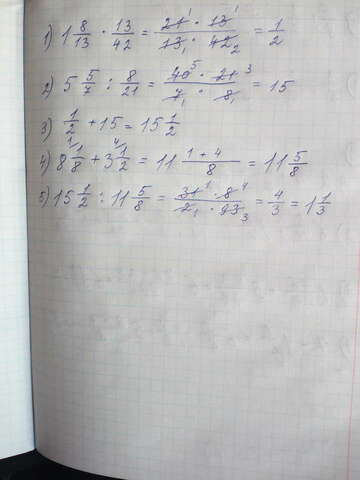 1) 1 8/13 · 13/42 = 21¹ · 13¹ / 13₁ · 42₂ = 1/2
2) 5 5/7 : 8/21 = 40⁵ · 21³ / 7₁ · 8₁ = 15
3) 1/2 + 15 = 15 1/2
4) 8 ¹1/8 + 3 ⁴1/2 = 11 1 + 4 / 8 = 11 5/8
5) 15 1/2 : 11 5/8 = 31¹ · 8⁴ / 2₁ · 93₃ = 4/3 = 1 1/3